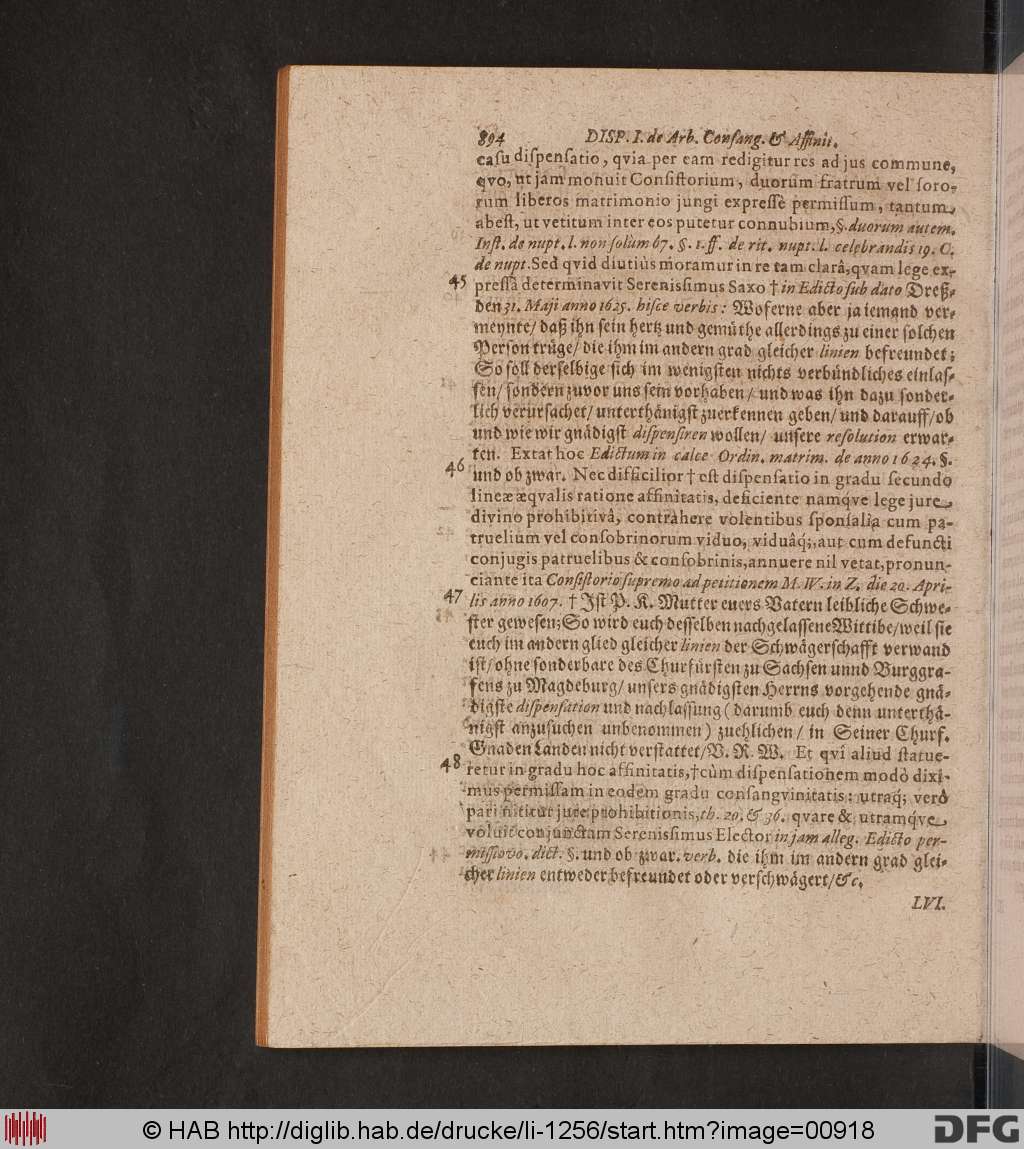 894 DISP. I. de Arb. Consang. & Affinit.
casu dispensatio, qvia per eam redigitur res ad jus commune,
qvo, ut jam monuit Consistorium, duorum fratrum vel soro-
rum liberos matrimonio jungi expressè permissum, tantum
abest, ut vetitum inter eos putetur connubium, §. duorum autem.
Inst. de nupt. l. non solùm 67. §. 1. ff. de rit. nupt. l. celebrandis 19. C.
de nupt. Sed qvid diutiùs moramur in re tam clarâ, qvam lege ex-
45 pressâ determinavit Serenissimus Saxo † in Edicto sub dato Dreß-
den 31. Maji anno 1625. hisce verbis: Woferne aber ja iemand ver-
meynte/ daß ihn sein hertz und gemüthe allerdings zu einer solchen
Person trüge/ die ihm im andern grad gleicher linien befreundet;
So soll derselbige sich im wenigsten nichts verbündliches einlas-
sen/ sondern zuvor uns sein vorhaben/ und was ihn dazu sonder-
lich verursachet/ unterthänigst zuerkennen geben/ und darauff/ ob
und wie wir gnädigst dispensiren wollen/ unsere resolution erwar-
ten. Extat hoc Edictum in calce Ordin. matrim. de anno 1624. §.
46 und ob zwar. Nec difficilior † est dispensatio in gradu secundo
lineæ æqvalis ratione affinitatis, deficiente namqve lege jure
divino prohibitivâ, contrahere volentibus sponsalia cum pa-
truelium vel consobrinorum viduo, viduâq;, aut cum defuncti
conjugis patruelibus & consobrinis, annuere nil vetat, pronun-
ciante ita Consistorio supremo ad petitionem M. W. in Z. die 20. Apri-
47 lis anno 1607. † Ist P. K. Mutter euers Vatern leibliche Schwe-
ster gewesen; So wird euch desselben nachgelassene Wittibe/ weil sie
euch im andern glied gleicher linien der Schwägerschafft verwand
ist/ ohne sonderbare des Churfürsten zu Sachsen unnd Burggra-
fens zu Magdeburg/ unsers gnädigsten Herrns vorgehende gnä-
digste dispensation und nachlassung (darumb euch denn unterthä-
nigst anzusuchen unbenommen) zuehlichen/ in Seiner Churf.
Gnaden Landen nicht verstattet/ V. R. W. Et qvî aliud statue-
48 retur in gradu hoc affinitatis, † cùm dispensationem modò dixi-
mus permissam in eodem gradu consangvinitatis: utraq; verò
pari nititur jure prohibitionis, th. 20. & 36. qvare & utramqve
voluit conjunctam Serenissimus Elector in jam alleg. Edicto per-
missovo. dict. §. und ob zwar. verb. die ihm im andern grad glei-
cher linien entweder befreundet oder verschwägert/ &c.
LVI.
© HAB http://diglib.hab.de/drucke/li-1256/start.htm?image=00918
DFG